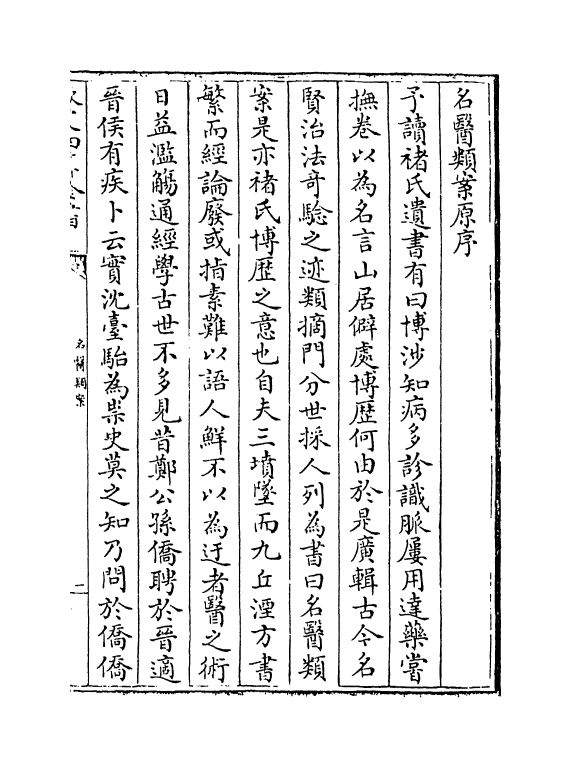 名醫類案原序
予讀禇氏遺書有曰博涉知病多診識脈屢用達藥嘗
撫卷以為名言山居僻處博歴何由於是廣輯古今名
賢治法竒驗之迹類摘門分世採人列為書曰名醫類
案是亦禇氏博歴之意也自夫三墳墜而九丘湮方書
繁而經論廢或指素難以語人鮮不以為迂者醫之術
日益濫觴通經學古世不多見昔鄭公孫僑聘於晉適
晉侯有疾卜云實沈臺駘為祟史莫之知乃問於僑僑
名醫類案
二